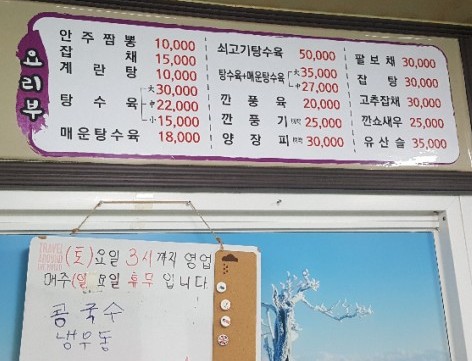 요리부
안주짬뽕 10,000
잡채 15,000
계란탕 10,000
탕수육 大 30,000
中 22,000
小 15,000
매운탕수육 18,000
쇠고기탕수육 50,000
탕수육+매운탕수육 大 35,000
中 27,000
깐풍육 20,000
깐풍기 25,000
양장피 30,000
팔보채 30,000
잡탕 30,000
고추잡채 30,000
깐쇼새우 25,000
유산슬 35,000
(토)요일 3시까지 영업
매주(일)요일 휴무 입니다.
콩국수
냉우동